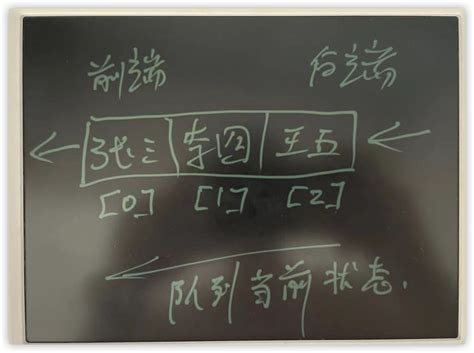 前端 后端
张三 李四 王五
[0] [1] [2]
队列当前状态.